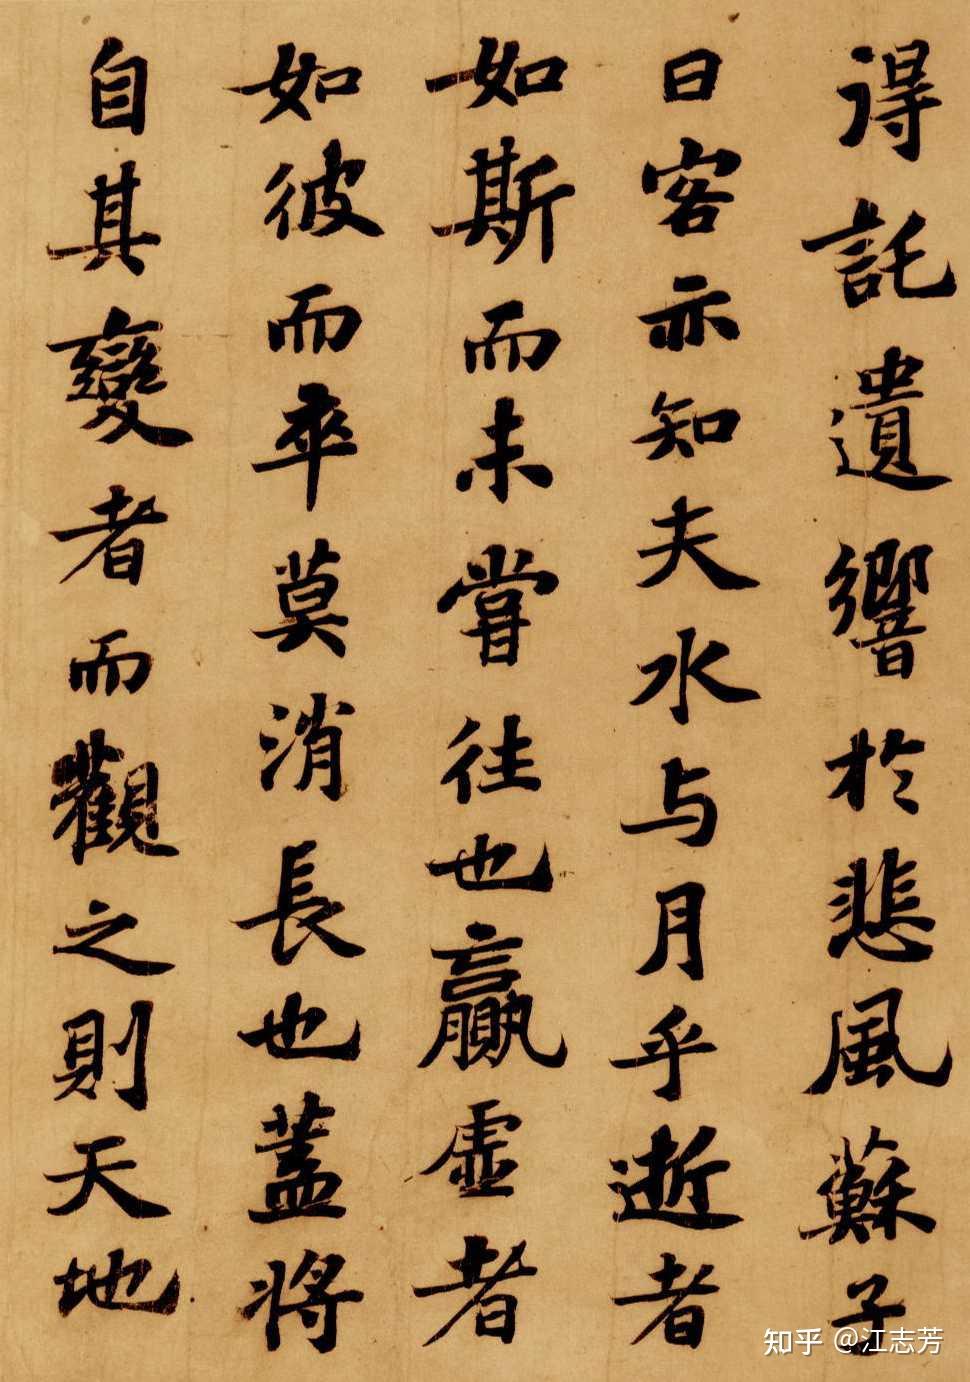 得託遺響於悲風蘇子
曰客亦知夫水与月乎逝者
如斯而未嘗往也贏虛者
如彼而卒莫消長也蓋將
自其變者而觀之則天地
知乎 @江志芳